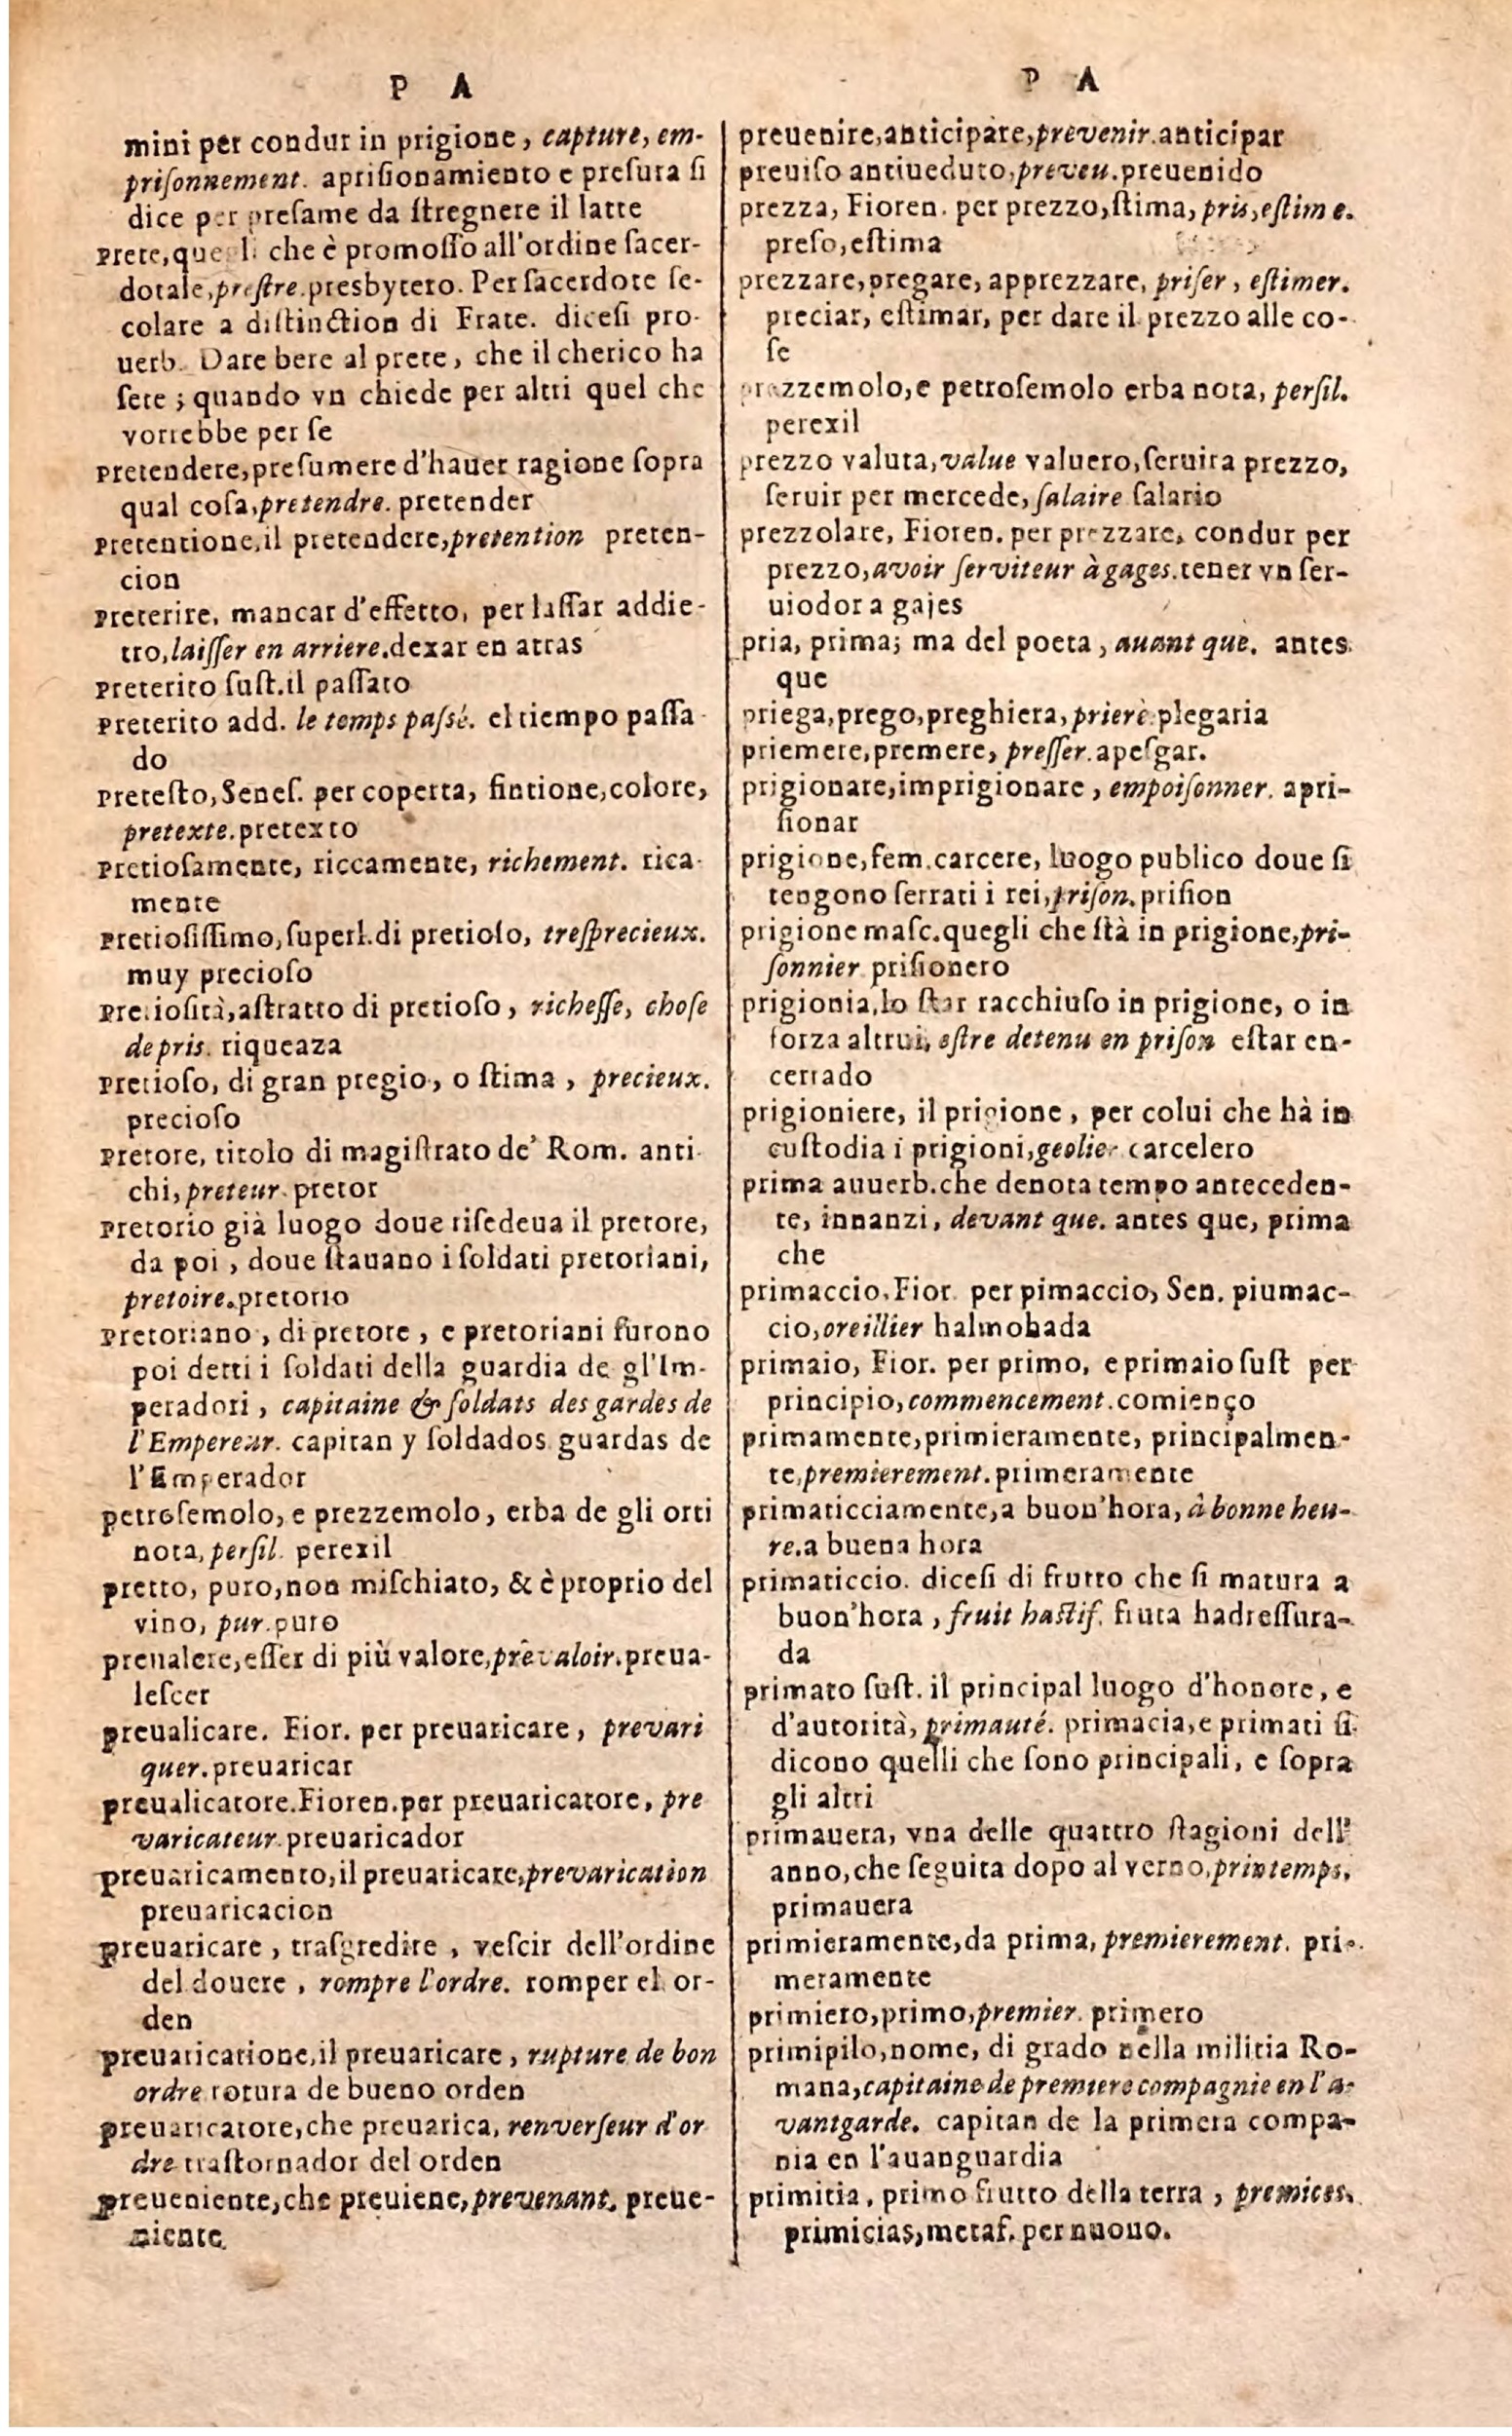 P A
mini per condur in prigione, capture, em-
priſonnement. apriſionamiento e preſura ſi
dice per preſame da ſtregnere il latte
prete, quegli che è promoſſo all'ordine ſacer-
dotale, preſtre. presbytero. Per ſacerdote ſe-
colare a diſtinction di Frate. diceſi pro-
uerb. Dare bere al prete, che il cherico ha
ſete; quando vn chiede per altri quel che
vorrebbe per ſe
pretendere, preſumere d'hauer ragione ſopra
qual coſa, pretendre. pretender
pretentione, il pretendere, pretention preten-
cion
preterire, mancar d'effetto, per laſſar addie-
tro, laiſſer en arriere. dexar en atras
preterito ſuſt. il paſſato
preterito add. le temps paſsé. el tiempo paſſa-
do
preteſto, Seneſ. per coperta, fintione, colore,
pretexte. pretexto
pretioſamente, riccamente, richement. rica-
mente
pretioſiſſimo, ſuperl. di pretioſo, treſprecieux.
muy precioſo
pretioſità, aſtratto di pretioſo, richeſſe, choſe
de pris. riqueaza
pretioſo, di gran pregio, o ſtima, precieux.
precioſo
pretore, titolo di magiſtrato de' Rom. anti-
chi, preteur. pretor
pretorio già luogo doue riſedeua il pretore,
da poi, doue ſtauano i ſoldati pretoriani,
pretoire. pretorio
pretoriano, di pretore, e pretoriani furono
poi detti i ſoldati della guardia de gl'Im-
peradori, capitaine & ſoldats des gardes de
l'Empereur. capitan y ſoldados guardas de
l'Emperador
petroſemolo, e prezzemolo, erba de gli orti
nota, perſil. perexil
pretto, puro, non miſchiato, & è proprio del
vino, pur. puro
preualere, eſſer di più valore, prêvaloir. preua-
leſcer
preualicare. Fior. per preuaricare, prevari
quer. preuaricar
preualicatore. Fioren. per preuaricatore, pre
varicateur. preuaricador
preuaricamento, il preuaricare, prevarication
preuaricacion
preuaricare, traſgredire, veſcir dell'ordine
del douere, rompre l'ordre. romper el or-
den
preuaricatione, il preuaricare, rupture de bon
ordre rotura de bueno orden
preuaricatore, che preuarica, renverſeur d'or
dre traſtornador del orden
preueniente, che preuiene, prevenant. preue-
niente
P A
preuenire, anticipare, prevenir. anticipar
preuiſo antiueduto, preveu. preuenido
prezza, Fioren. per prezzo, ſtima, pris, eſtime.
preſo, eſtima
prezzare, pregare, apprezzare, priſer, eſtimer.
preciar, eſtimar, per dare il prezzo alle co-
ſe
prezzemolo, e petroſemolo erba nota, perſil.
perexil
prezzo valuta, value valuero, ſeruira prezzo,
ſeruir per mercede, ſalaire ſalario
prezzolare, Fioren. per prezzare, condur per
prezzo, avoir ſerviteur à gages. tener vn ſer-
uiodor a gajes
pria, prima; ma del poeta, auant que. antes
que
priega, prego, preghiera, prierè. plegaria
priemere, premere, preſſer. apeſgar.
prigionare, imprigionare, empoiſonner. apri-
ſionar
prigione, fem. carcere, luogo publico doue ſi
tengono ſerrati i rei, priſon. priſion
prigione maſc. quegli che ſtà in prigione, pri-
ſonnier priſionero
prigionia, lo ſtar racchiuſo in prigione, o in
forza altrui, eſtre detenu en priſon eſtar en-
cerrado
prigioniere, il prigione, per colui che hà in
cuſtodia i prigioni, geolier carcelero
prima auuerb. che denota tempo anteceden-
te, innanzi, devant que. antes que, prima
che
primaccio, Fior. per pimaccio, Sen. piumac-
cio, oreillier halmohada
primaio, Fior. per primo, e primaio ſuſt per
principio, commencement. comienço
primamente, primieramente, principalmen-
te, premierement. primeramente
primaticciamente, a buon'hora, à bonne heu-
re. a buena hora
primaticcio. diceſi di frutto che ſi matura a
buon'hora, fruit haſtif. fruta hadreſſura-
da
primato ſuſt. il principal luogo d'honore, e
d'autorità, primauté. primacia, e primati ſi
dicono quelli che ſono principali, e ſopra
gli altri
primauera, vna delle quattro ſtagioni dell'
anno, che ſeguita dopo al verno, printemps.
primauera
primieramente, da prima, premierement. pri-
meramente
primiero, primo, premier. primero
primipilo, nome, di grado nella militia Ro-
mana, capitaine de premiere compagnie en l'a-
vantgarde. capitan de la primera compa-
nia en l'auanguardia
primitia, primo frutto della terra, premices.
primicias, metaf. per nuouo.